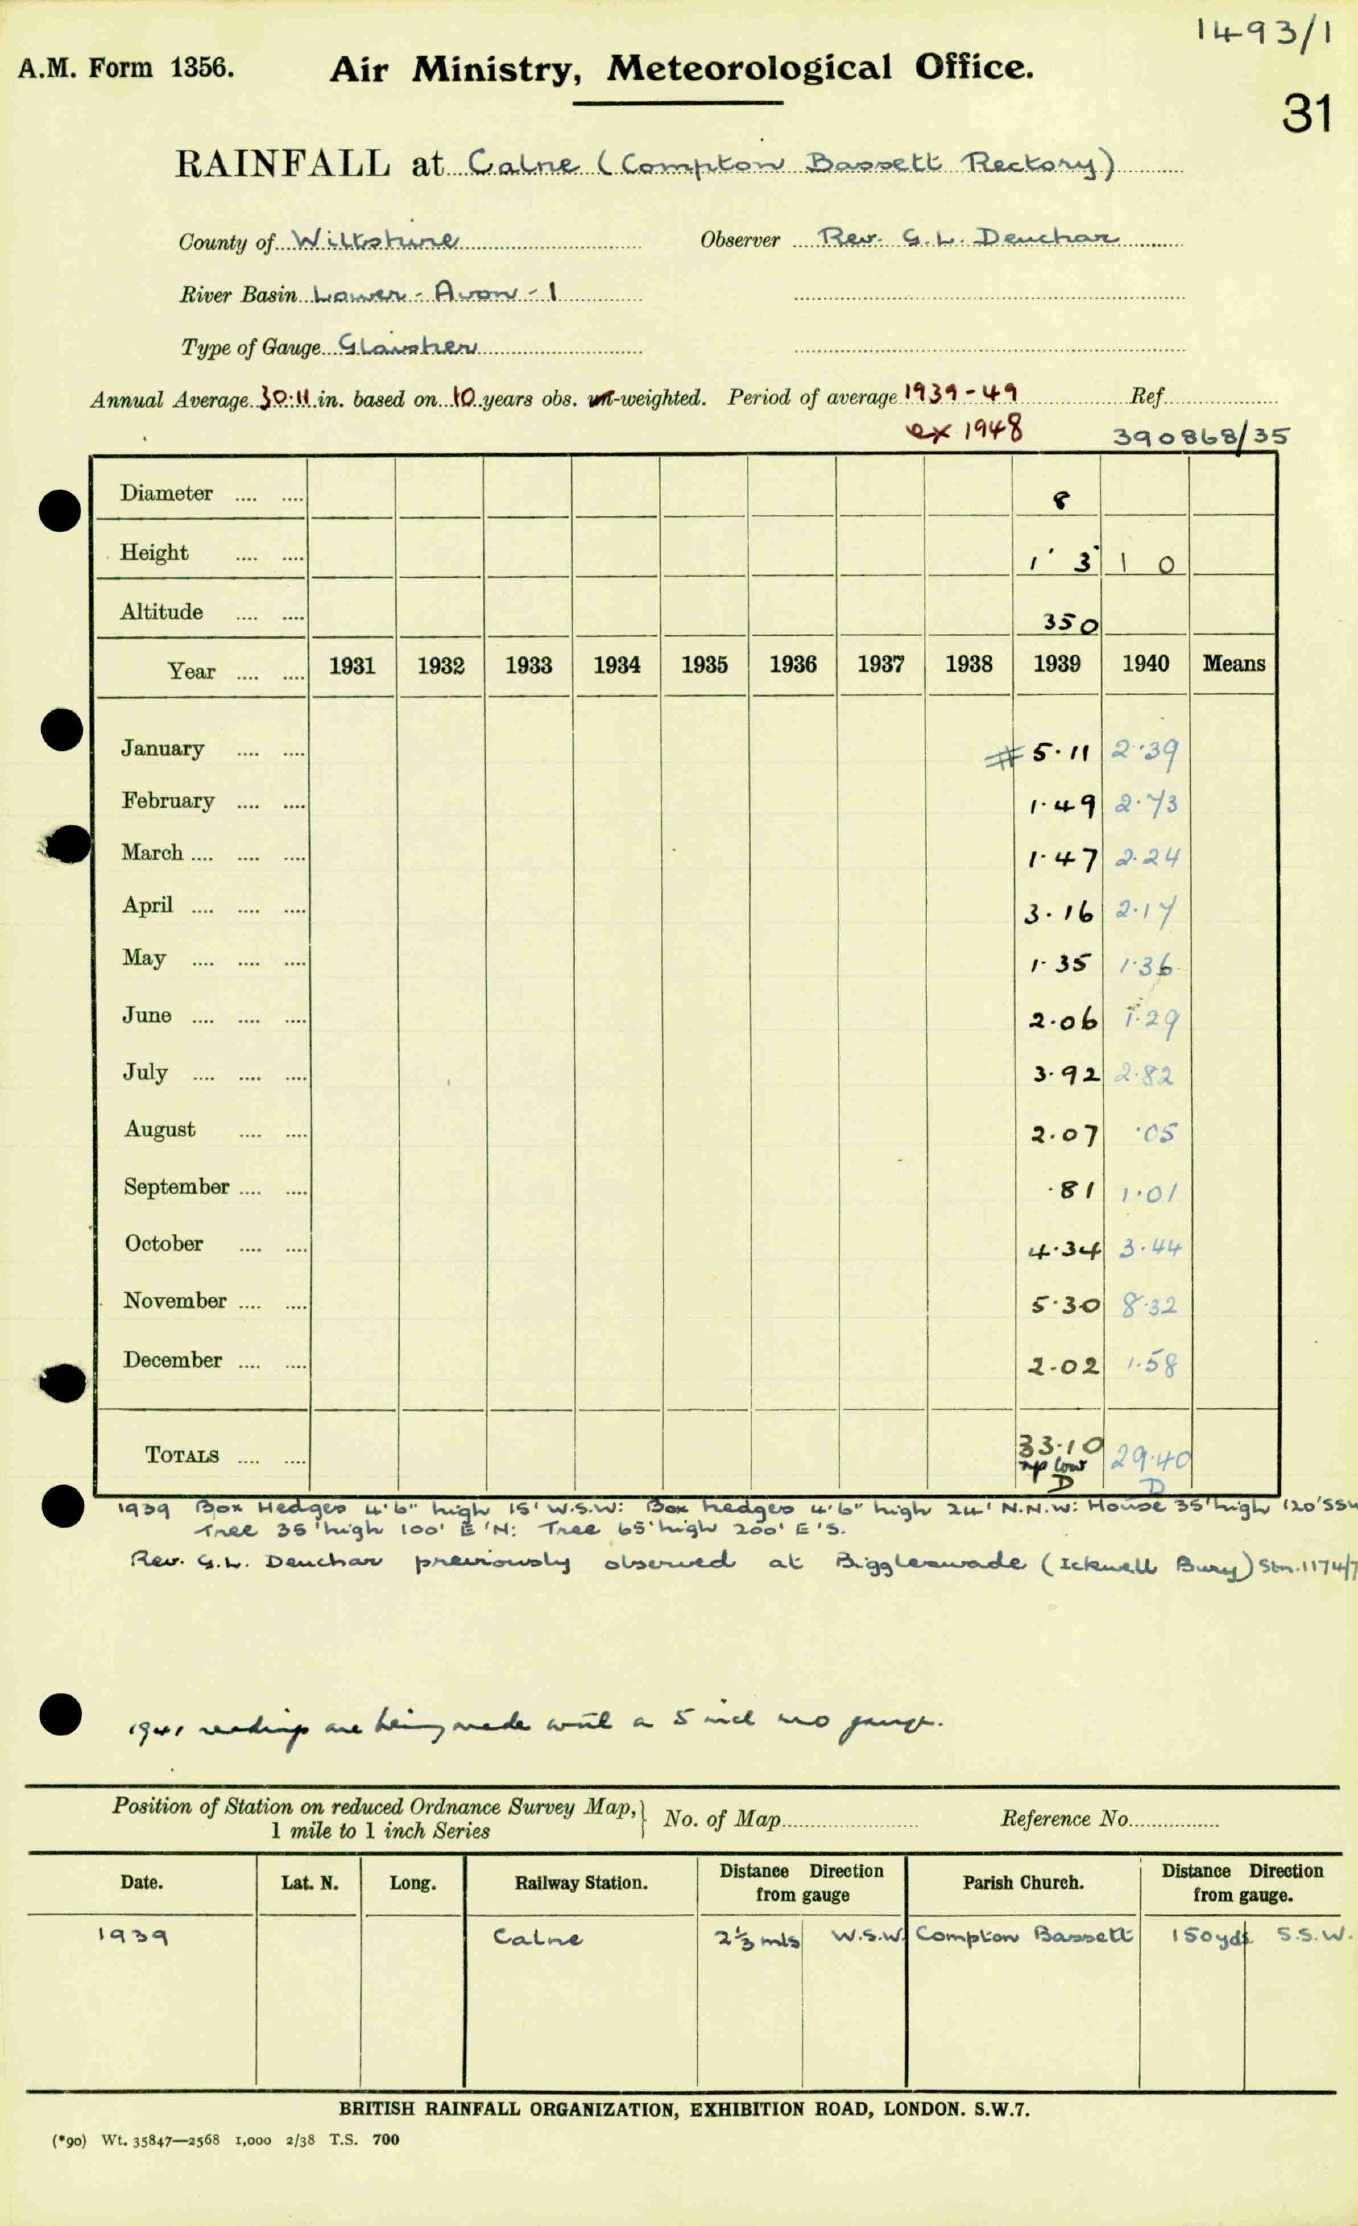 1493/1
A.M. Form 1356. Air Ministry, Meteorological Office.
31
RAINFALL at Calne (Compton Bassett Rectory)
County of Wiltshire Observer Rev. G.L. Deuchar
River Basin Lower - Avon - 1
Type of Gauge Glaisher
Annual Average 30.11 in. based on 10 years obs. -weighted. Period of average 1939-49 Ref.
ex 1948 390868/35
Diameter .... .... 8
Height .... .... 1' 3" 1 0
Altitude .... .... 350
Year .... .... 1931 1932 1933 1934 1935 1936 1937 1938 1939 1940 Means
January .... .... # 5.11 2.39
February .... .... 1.49 2.73
March .... .... .... 1.47 2.24
April .... .... .... 3.16 2.17
May .... .... .... 1.35 1.36
June .... .... .... 2.06 1.29
July .... .... .... 3.92 2.82
August .... .... 2.07 .05
September .... .... .81 1.01
October .... .... 4.34 3.44
November .... .... 5.30 8.32
December .... .... 2.02 1.58
TOTALS .... .... 33.10 29.40
low
D D
1939 Box Hedges 4'6" high 15' W.S.W: Box hedges 4'6" high 24' N.N.W: House 35' high 120' SSW
Tree 35' high 100' E'N: Tree 65' high 200' E'S.
Rev. G.L. Deuchar previously observed at Biggleswade (Ickwell Bury) Stn. 1174/7
1941 readings are being made with a 5 inch MO gauge.
Position of Station on reduced Ordnance Survey Map, } No. of Map Reference No.
1 mile to 1 inch Series
Date. Lat. N. Long. Railway Station. Distance Direction from gauge Parish Church. Distance Direction from gauge.
1939 Calne 2⅓ mls W.S.W. Compton Bassett 150yds. S.S.W.
BRITISH RAINFALL ORGANIZATION, EXHIBITION ROAD, LONDON. S.W.7.
(*90) Wt. 35847—2568 1,000 2/38 T.S. 700